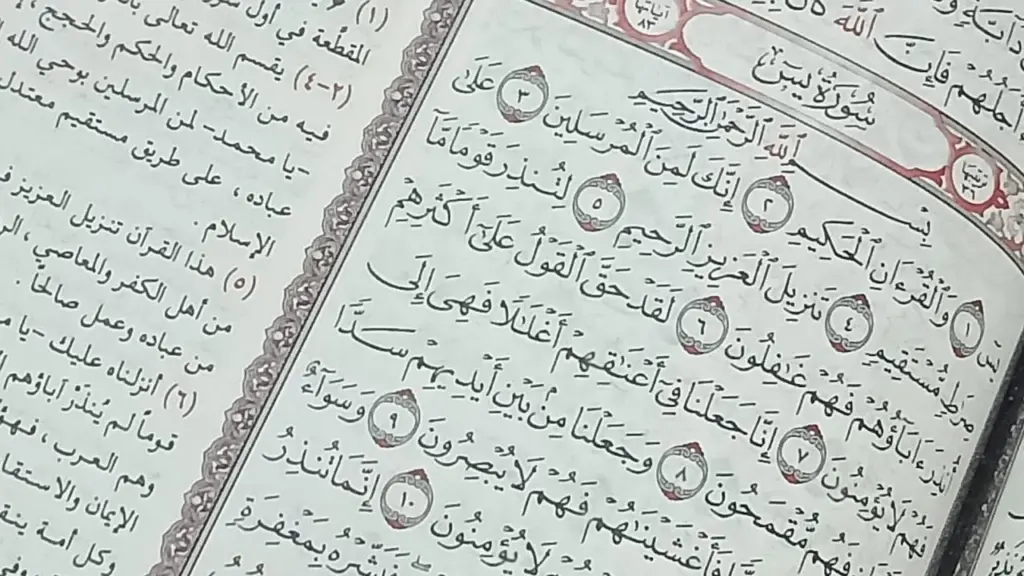 أَجَلُهُمْ فَإِنَّ ٱللَّهَ
سُورَةُ يسٓ
بِسْمِ ٱللَّهِ ٱلرَّحْمَٰنِ ٱلرَّحِيمِ
يسٓ ١ وَٱلْقُرْءَانِ ٱلْحَكِيمِ ٢ إِنَّكَ لَمِنَ ٱلْمُرْسَلِينَ ٣ عَلَىٰ
صِرَٰطٍ مُّسْتَقِيمٍ ٤ تَنزِيلَ ٱلْعَزِيزِ ٱلرَّحِيمِ ٥ لِتُنذِرَ قَوْمًا مَّآ
أُنذِرَ ءَابَآؤُهُمْ فَهُمْ غَٰفِلُونَ ٦ لَقَدْ حَقَّ ٱلْقَوْلُ عَلَىٰٓ أَكْثَرِهِمْ
فَهُمْ لَا يُؤْمِنُونَ ٧ إِنَّا جَعَلْنَا فِىٓ أَعْنَٰقِهِمْ أَغْلَٰلًا فَهِىَ إِلَى
فَهُم مُّقْمَحُونَ ٨ وَجَعَلْنَا مِنۢ بَيْنِ أَيْدِيهِمْ سَدًّا
فَأَغْشَيْنَٰهُمْ فَهُمْ لَا يُبْصِرُونَ ٩ وَسَوَآءٌ
لَا يُؤْمِنُونَ ١٠ إِنَّمَا تُنذِرُ
فَبَشِّرْهُ بِمَغْفِرَةٍ
(١)
المقطَّعة في أول
(٢-٤) يقسم الله تعالى
فيه من الأحكام والحكم والحجج
-يا محمد- لمن المرسلين بوحي الله
عباده، على طريق مستقيم معتدل
الإسلام
(٥) هذا القرآن تنزيل العزيز
من أهل الكفر والمعاصي،
من عباده وعمل صالحًا.
(٦) أنزلناه عليك -يا
قومًا لم يُنذَرْ آباؤهم
وهم العرب، فهؤلاء
الإيمان والاستقامة
وكل أمة